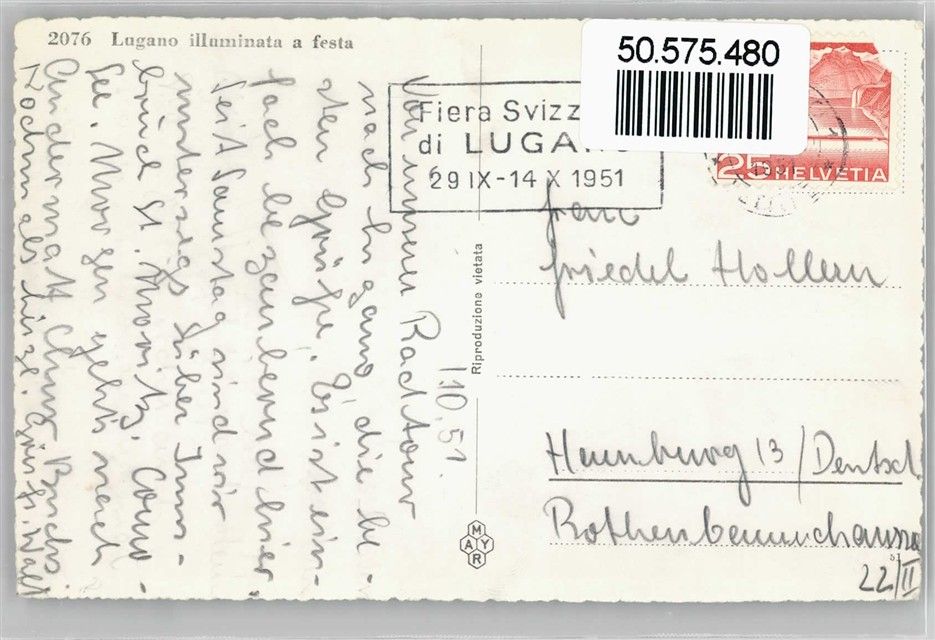 2076 Lugano illuminata a festa
50.575.480
Fiera Svizz
di LUGANO
29 IX-14 X 1951
25 HELVETIA
1.10.51
Von unserer Radtour
nach Lugano die be-
sten Grüße. Es ist ein-
fach bezaubernd hier.
Seit Samstag sind wir
unterwegs über Inns-
bruck St. Moritz, Como-
See. Morgen geht's nach
Andermatt Chur
Kochm als
Riproduzione vietata
MAYR
Frau
Friedel Hollern
Hamburg 13/Deutschl
Rothenbaumchaussee
22/II